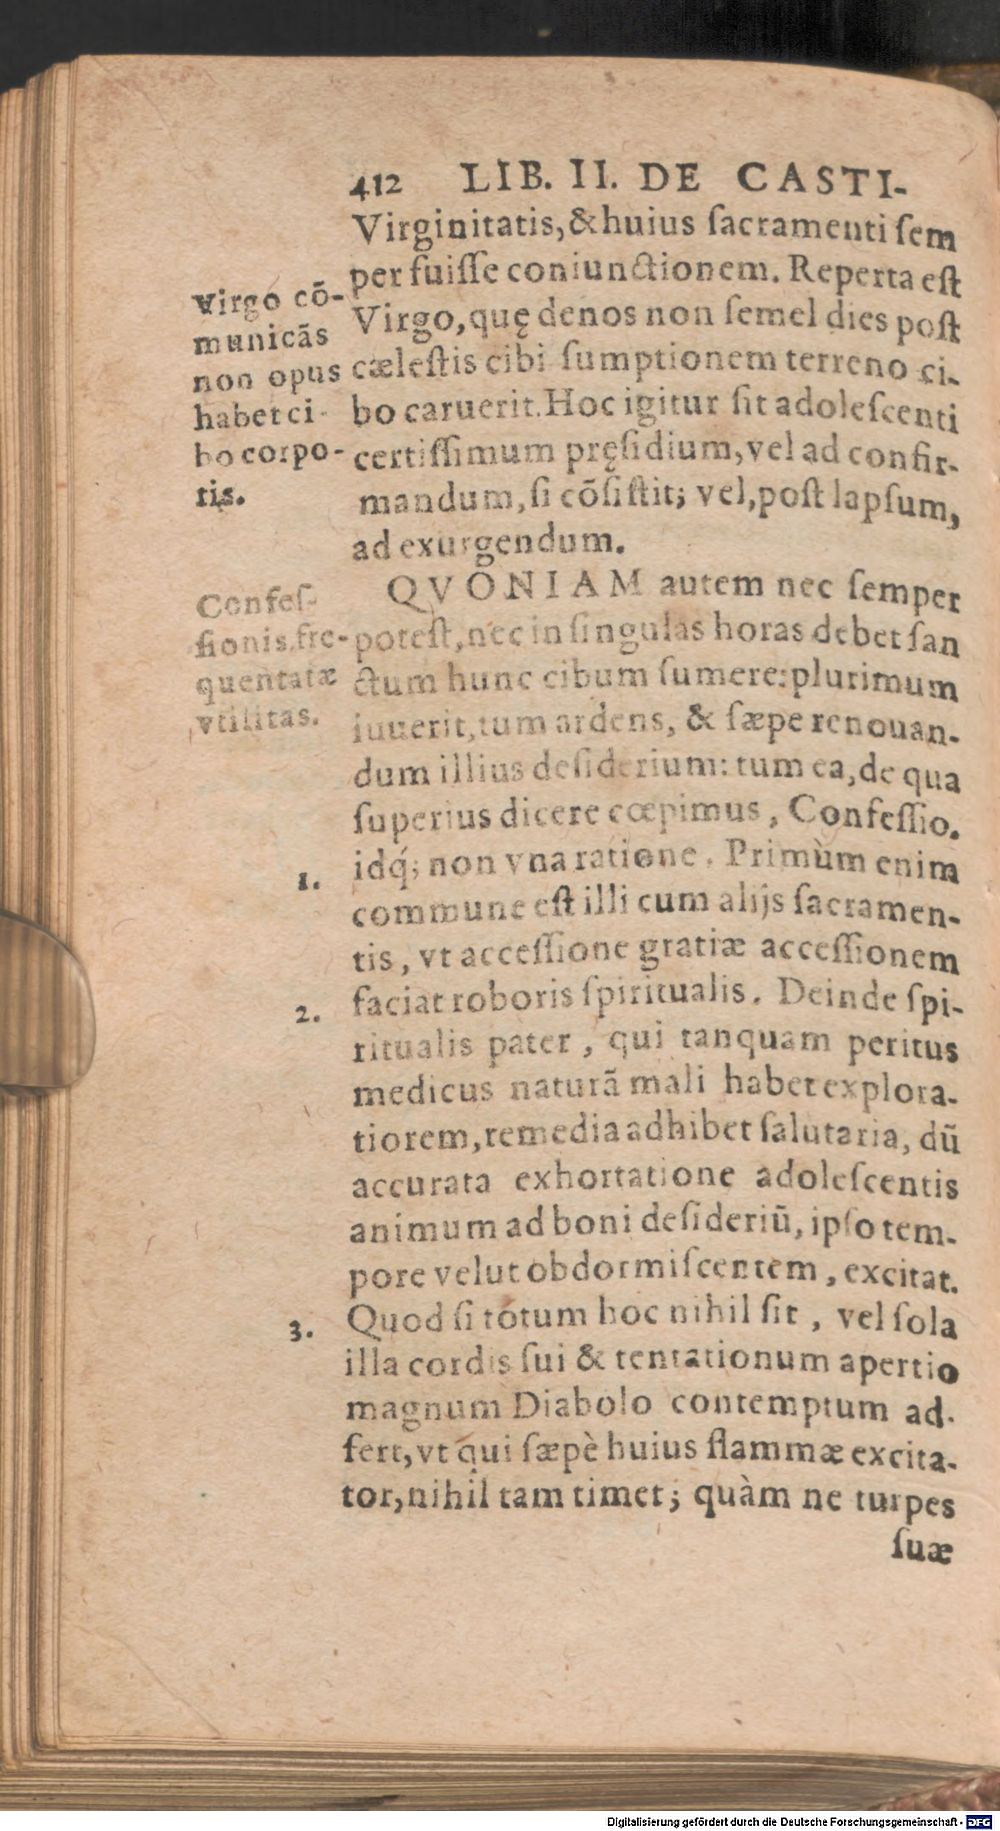 412 LIB. II. DE CASTI-
Virginitatis, & huius ſacramenti ſem
per fuiſſe coniunctionem. Reperta eſt
Virgo, quę denos non ſemel dies poſt
cæleſtis cibi ſumptionem terreno ci-
bo caruerit. Hoc igitur ſit adoleſcenti
certiſſimum pręſidium, vel ad confir-
mandum, ſi cõſiſtit; vel, poſt lapſum,
ad exurgendum.
Virgo cõ-
municãs
non opus
habet ci-
bo corpo-
ris.
QVONIAM autem nec ſemper
poteſt, nec in ſingulas horas debet ſan
ctum hunc cibum ſumere: plurimum
iuuerit, tum ardens, & ſæpe renouan-
dum illius deſiderium: tum ea, de qua
ſuperius dicere cœpimus, Confeſſio.
idq́; non vna ratione. Primùm enim
commune eſt illi cum alijs ſacramen-
tis, vt acceſſione gratiæ acceſſionem
faciat roboris ſpiritualis. Deinde ſpi-
ritualis pater, qui tanquam peritus
medicus naturã mali habet explora-
tiorem, remedia adhibet ſalutaria, dũ
accurata exhortatione adoleſcentis
animum ad boni deſideriũ, ipſo tem-
pore velut obdormiſcentem, excitat.
Quod ſi totum hoc nihil ſit, vel ſola
illa cordis ſui & tentationum apertio
magnum Diabolo contemptum ad-
fert, vt qui ſæpè huius flammæ excita-
tor, nihil tam timet; quàm ne turpes
ſuæ
Confeſ-
ſionis fre-
quentatæ
vtilitas.
1.
2.
3.
Digitalisierung gefördert durch die Deutsche Forschungsgemeinschaft - DFG